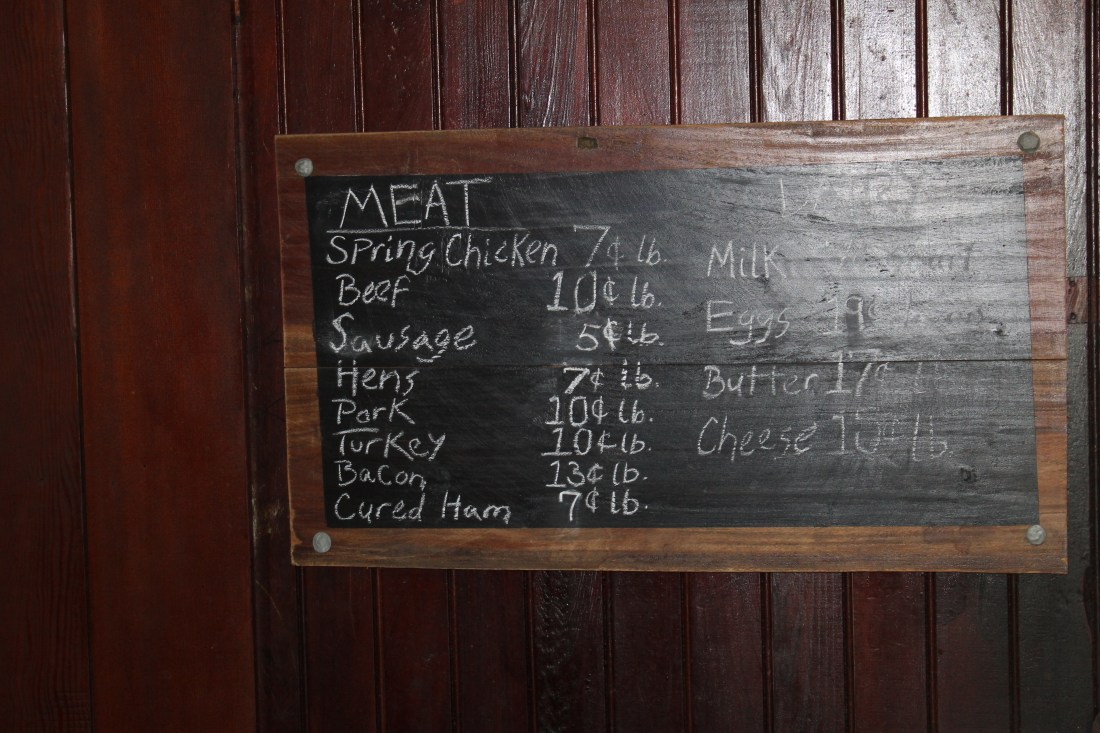 MEAT
Spring Chicken 7¢ lb.
Beef 10¢ lb.
Sausage 5¢ lb.
Hens 7¢ lb.
Pork 10¢ lb.
Turkey 10¢ lb.
Bacon 13¢ lb.
Cured Ham 7¢ lb.
Milk
Eggs 19¢
Butter 17¢
Cheese lb.